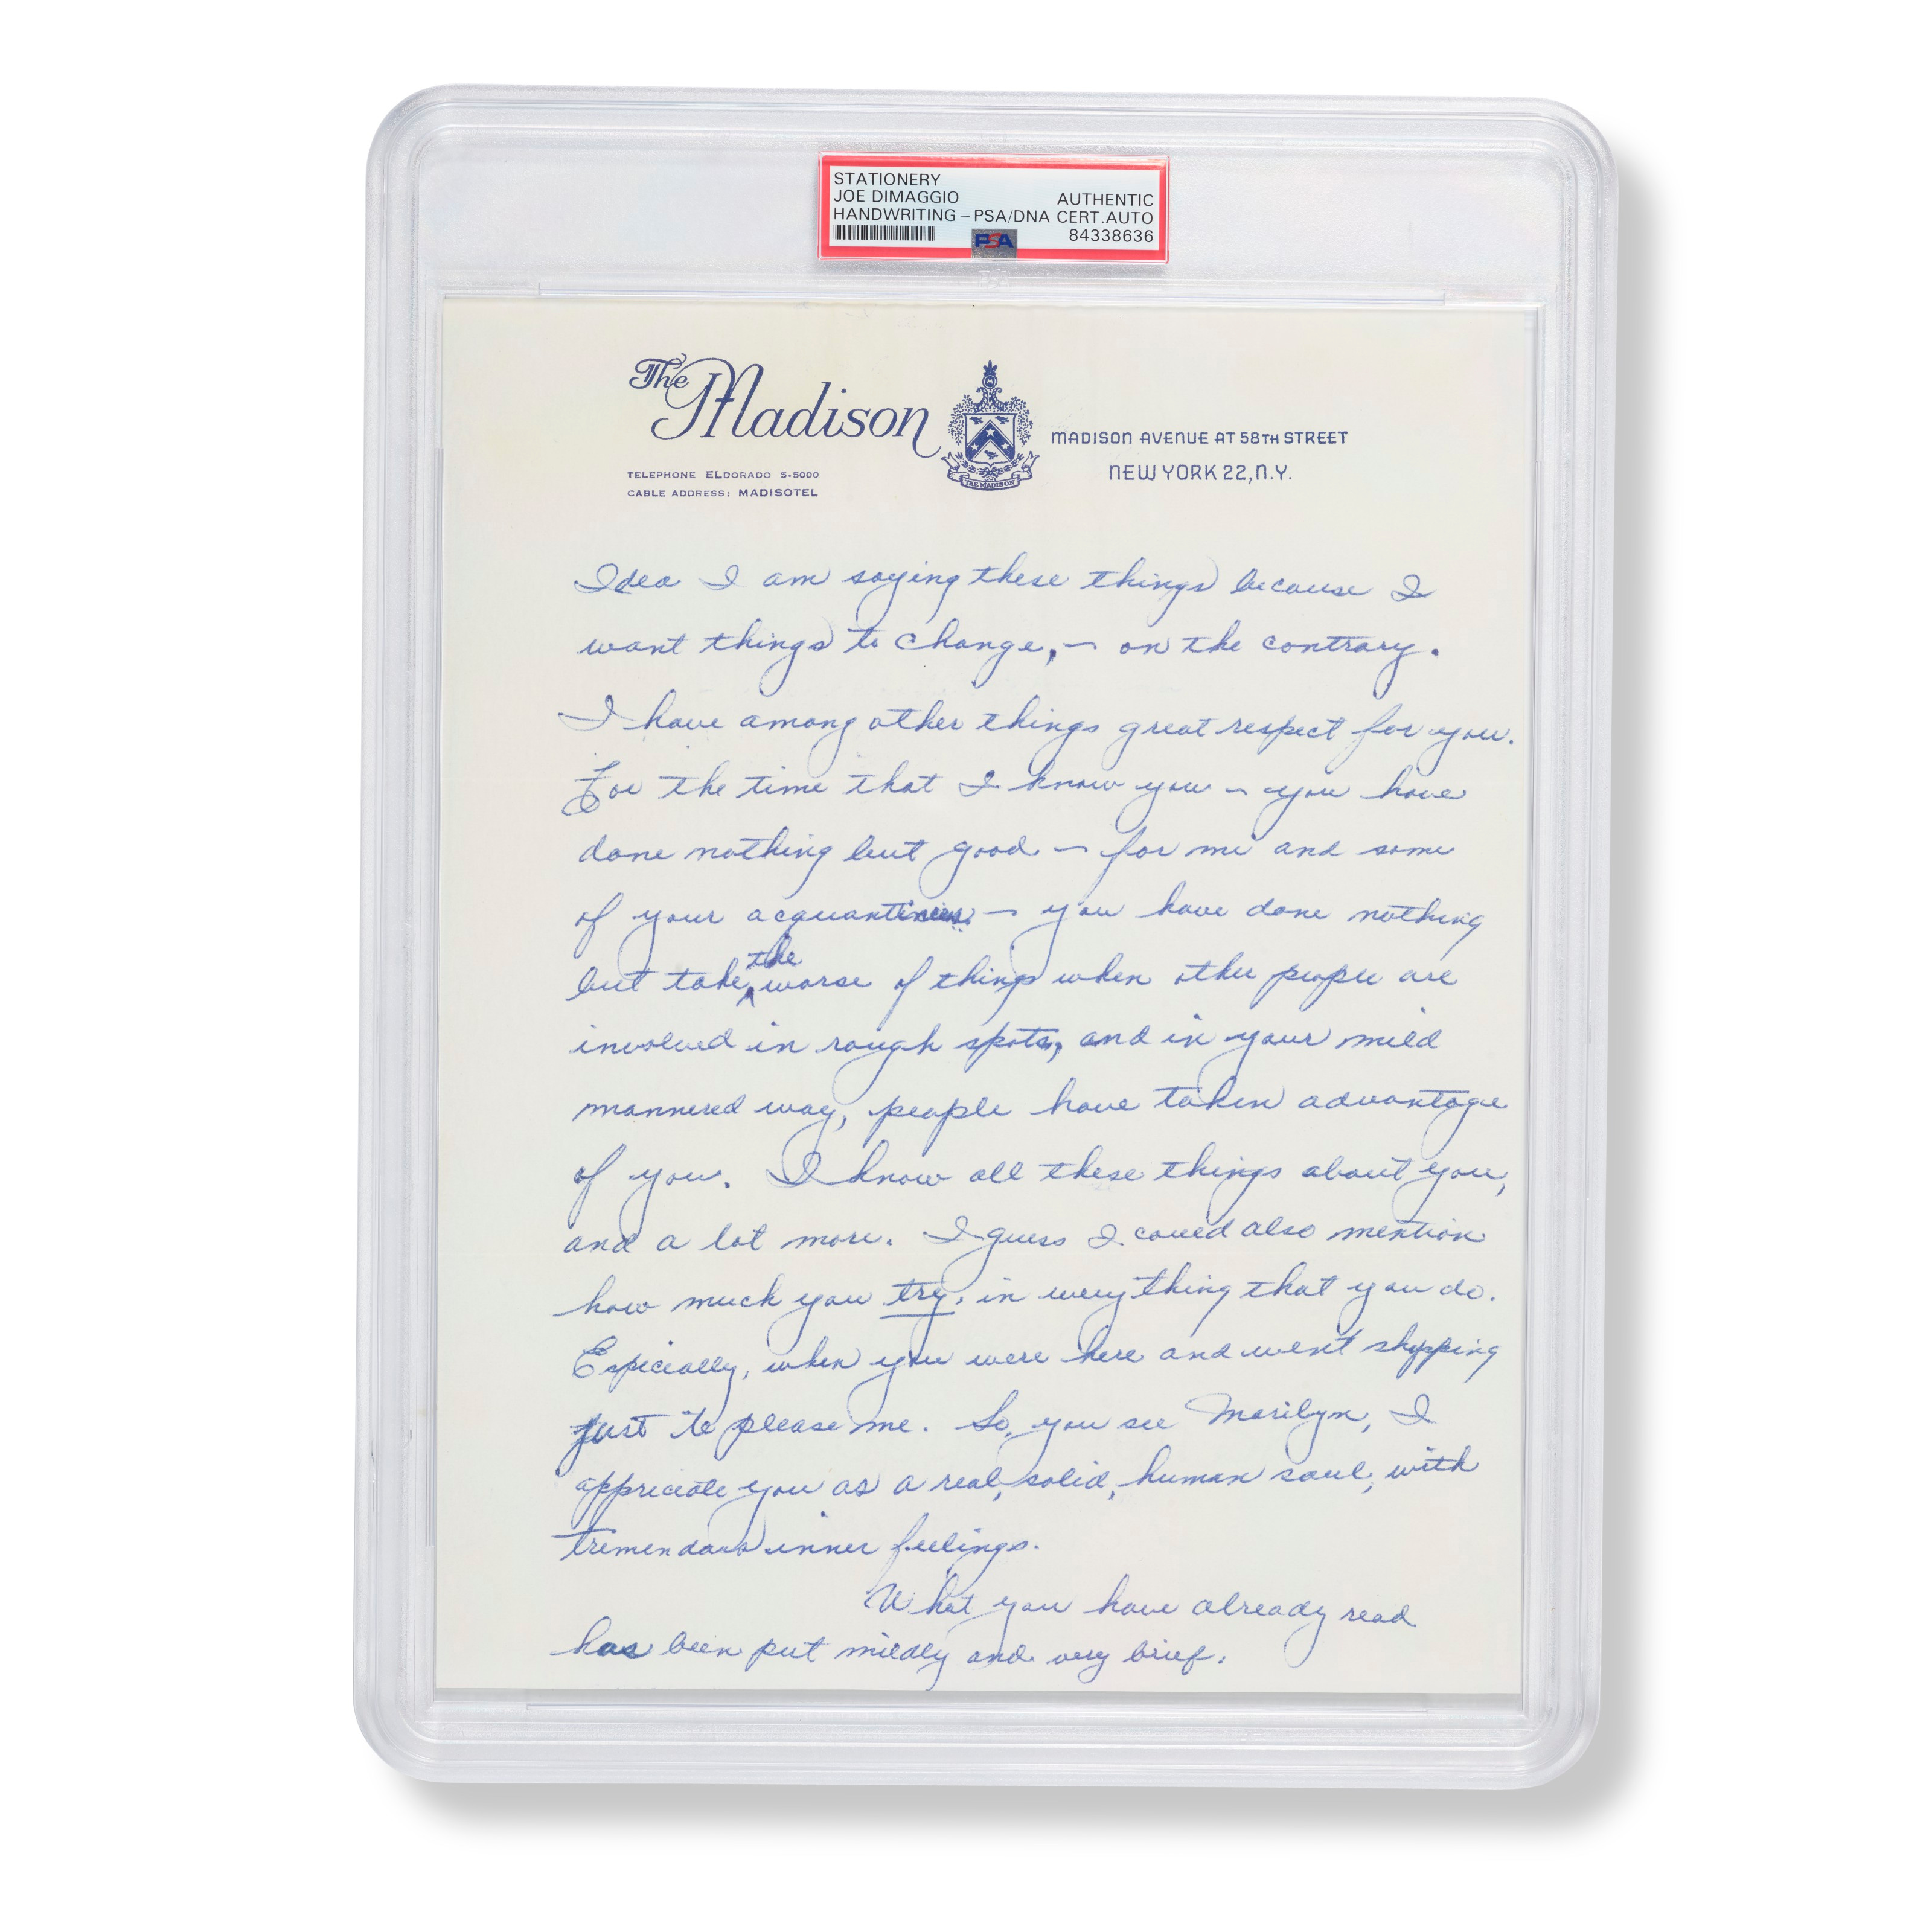 STATIONERY
JOE DIMAGGIO AUTHENTIC
HANDWRITING – PSA/DNA CERT.AUTO
PSA 84338636
The Madison
MADISON AVENUE AT 58TH STREET
NEW YORK 22, N.Y.
TELEPHONE ELDORADO 5-5000
CABLE ADDRESS: MADISOTEL
THE MADISON
Idea I am saying these things because I
want things to change, – on the contrary.
I have among other things great respect for you.
For the time that I know you – you have
done nothing but good – for me and some
of your – you have done nothing
but take the worse of things when other people are
involved in rough spots, and in your mild
mannered way, people have taken advantage
of you. I know all these things about you,
and a lot more. I guess I could also mention
how much you try, in everything that you do.
Especially, when you were here and went shopping
just to please me. So, you see Marilyn, I
appreciate you as a real, solid, human soul, with
tremendous inner feelings.
What you have already read
has been put mildly and very brief.